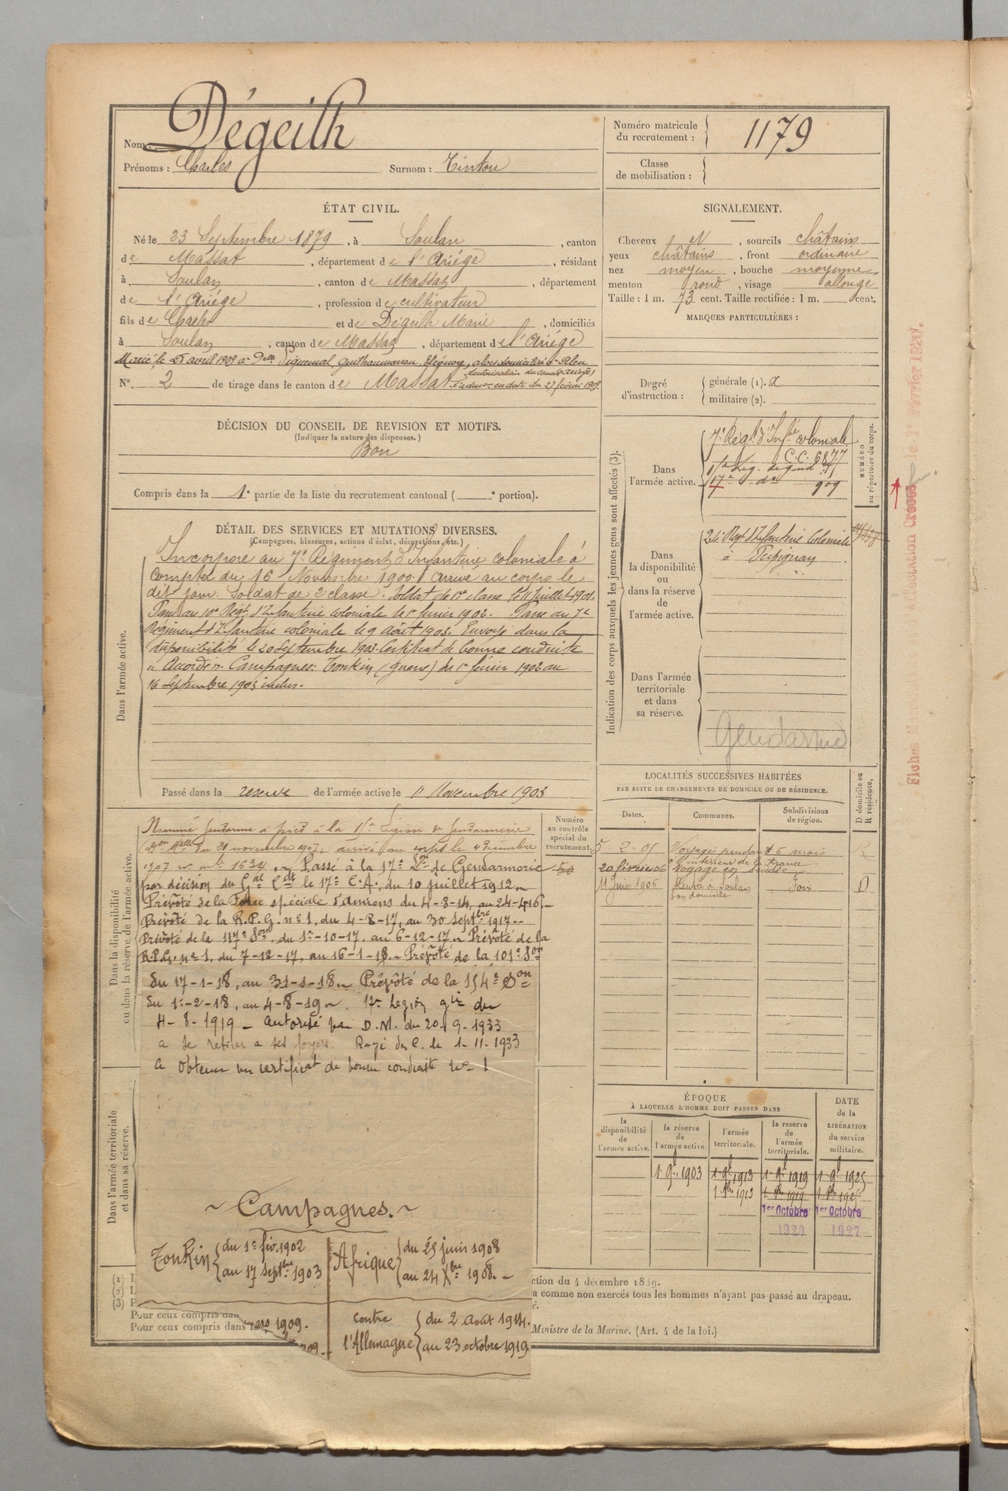 Nom : Dégeilh
Prénoms : Charles Surnom : Tintou
Numéro matricule du recrutement : 1179
Classe de mobilisation :
ÉTAT CIVIL.
Né le 23 Septembre 1879, à Soulan, canton
de Massat, département de l'Ariége, résidant
à Soulan, canton de Massat, département
de l'Ariége, profession de cultivateur
fils de Charles et de Dégeilh Marie, domiciliés
à Soulan, canton de Massat, département de l'Ariége
Marié le 28 avril 1909 à Delle
N°. 2 de tirage dans le canton de Massat
SIGNALEMENT.
Cheveux N, sourcils châtains
yeux châtains, front ordinaire
nez moyen, bouche moyenne
menton rond, visage allongé
Taille : 1 m. 73 cent. Taille rectifiée : 1 m. cent.
MARQUES PARTICULIÈRES :
Degré d'instruction : générale (1). 2
militaire (2).
DÉCISION DU CONSEIL DE REVISION ET MOTIFS.
(Indiquer la nature des dispenses.)
Bon
Compris dans la 1e partie de la liste du recrutement cantonal ( e portion).
DÉTAIL DES SERVICES ET MUTATIONS DIVERSES.
(Campagnes, blessures, actions d'éclat, décorations, etc.)
Dans l'armée active.
Incorporé au 7e Régiment d'Infanterie coloniale à
compter du 16 Novembre 1900. Arrivé au corps le
dit jour. Soldat de 2e classe. Soldat de 1re classe le 11 juillet 1901.
Passé au 10e Régt d'Infanterie coloniale le 1er février 1902. Passé au 7e
Régiment d'Infanterie coloniale le 9 Août 1903. Envoyé dans la
disponibilité le 20 Septembre 1903. Certificat de bonne conduite
"Accordé". Campagnes : Tonkin (guerre) du 1er février 1902 au
16 Septembre 1903 inclus.
Passé dans la reserve de l'armée active le 1 Novembre 1903
Indication des corps auxquels les jeunes gens sont affectés (3).
Dans l'armée active.
7e Régt d'Infie coloniale
C.C. 6877
17e do 909
NUMÉRO au répertoire du corps.
Dans la disponibilité ou dans la réserve de l'armée active.
24 Régt d'Infanterie Coloniale
à Perpignan
Dans l'armée territoriale et dans sa réserve.
Gendarmerie
LOCALITÉS SUCCESSIVES HABITÉES
PAR SUITE DE CHANGEMENTS DE DOMICILE OU DE RÉSIDENCE.
Dates. Communes. Subdivisions de région. D domicile ou R résidence.
5-2-05 Voyage pendant 6 mois R
l'intérieur de la France
20 février 06 Voyage en Suisse
11 Juin 1906 Rentré à Soulan Foix D
son domicile
Dans la disponibilité ou dans la réserve de l'armée active.
Numéro au contrôle spécial du recrutement.
Nommé Gendarme à pied à la légion de Gendarmerie
Don Mlle du 21 novembre 1907, arrivé au corps le 4 Décembre
1907 no mle 1624. Passé à la 17e Lon de Gendarmerie
par décision du Gal Cdt le 17e C.A. du 10 juillet 1912.
Prévôté de la Force spéciale d'Amiens du 4-8-14, au 24-4-16
Prévôté de la R.P.G. no 1, du 4-8-17, au 30 septbre 1917
Prévôté de la 117e Don du 1er-10-17, au 6-12-17. Prévôté de la
R.P.G. no 1, du 7-12-17, au 16-1-18. Prévôté de la 101e Don
du 17-1-18, au 31-1-18. Prévôté de la 154e Don
du 1er-2-18, au 4-8-19. 17e Légion gie du
4-8-1919 - autorisé par D.M. du 20-9-1933
à se retirer à ses foyers. Rayé des C. le 1-11-1933
a obtenu un certificat de bonne conduite
Dans l'armée territoriale et dans sa réserve.
~ Campagnes. ~
Tonkin du 1er fév. 1902
au 17 septbre 1903
Afrique du 25 juin 1908
au 24 Xbre 1908.
contre l'Allemagne du 2 Août 1914.
au 23 octobre 1919
ÉPOQUE
À LAQUELLE L'HOMME DOIT PASSER DANS
la disponibilité de l'armée active. la réserve de l'armée active. l'armée territoriale. la réserve de l'armée territoriale. DATE de la LIBÉRATION du service militaire.
1 9bre 1903 1 9bre 1913 1 9bre 1919 1 9bre 1925
1er Octobre 1er Octobre
1920 1927
(1)
(2)
(3)
ction du 4 décembre 1889.
a comme non exercés tous les hommes n'ayant pas passé au drapeau.
Pour ceux compris dan
Pour ceux compris dans
mars 1909.
Ministre de la Marine. (Art. 4 de la loi.)
le 1er Février 1920.